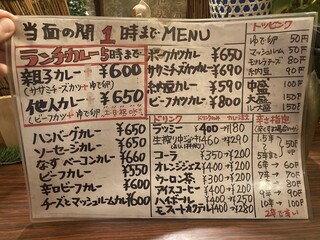 当面の間1時までMENU
ランチカレー5時まで
親子カレー ¥600
(ササミチーズカツ+ゆで卵)
他人カレー ¥650
(ビーフカツ+ゆで卵)
ハンバーグカレー ¥650
ソーセージカレー ¥650
なす ベーコンカレー ¥660
ビーフカレー ¥550
辛口ビーフカレー ¥600
チーズとマッシュルームカレー ¥600
ポークカツカレー ¥650
ササミチーズカツカレー ¥690
納豆カレー ¥590
ビーフカツカレー ¥800
ドリンク
ラッシー ¥400→180
¥460→¥290
コーラ ¥350→¥200
オレンジジュース ¥350→¥200
ウーロン茶 ¥300→¥200
アイスコーヒー ¥400→¥200
ハイボール ¥450→¥250
¥400→¥280
トッピング
ゆで卵 50円
マッシュルーム 50円
モツレラチーズ 80円
納豆 90円
中盛 100円
大盛 150円
ルー大盛 150円
辛さ指定
6辛→60円
7辛→70円
8辛→80円
9辛→90円
10辛→100円